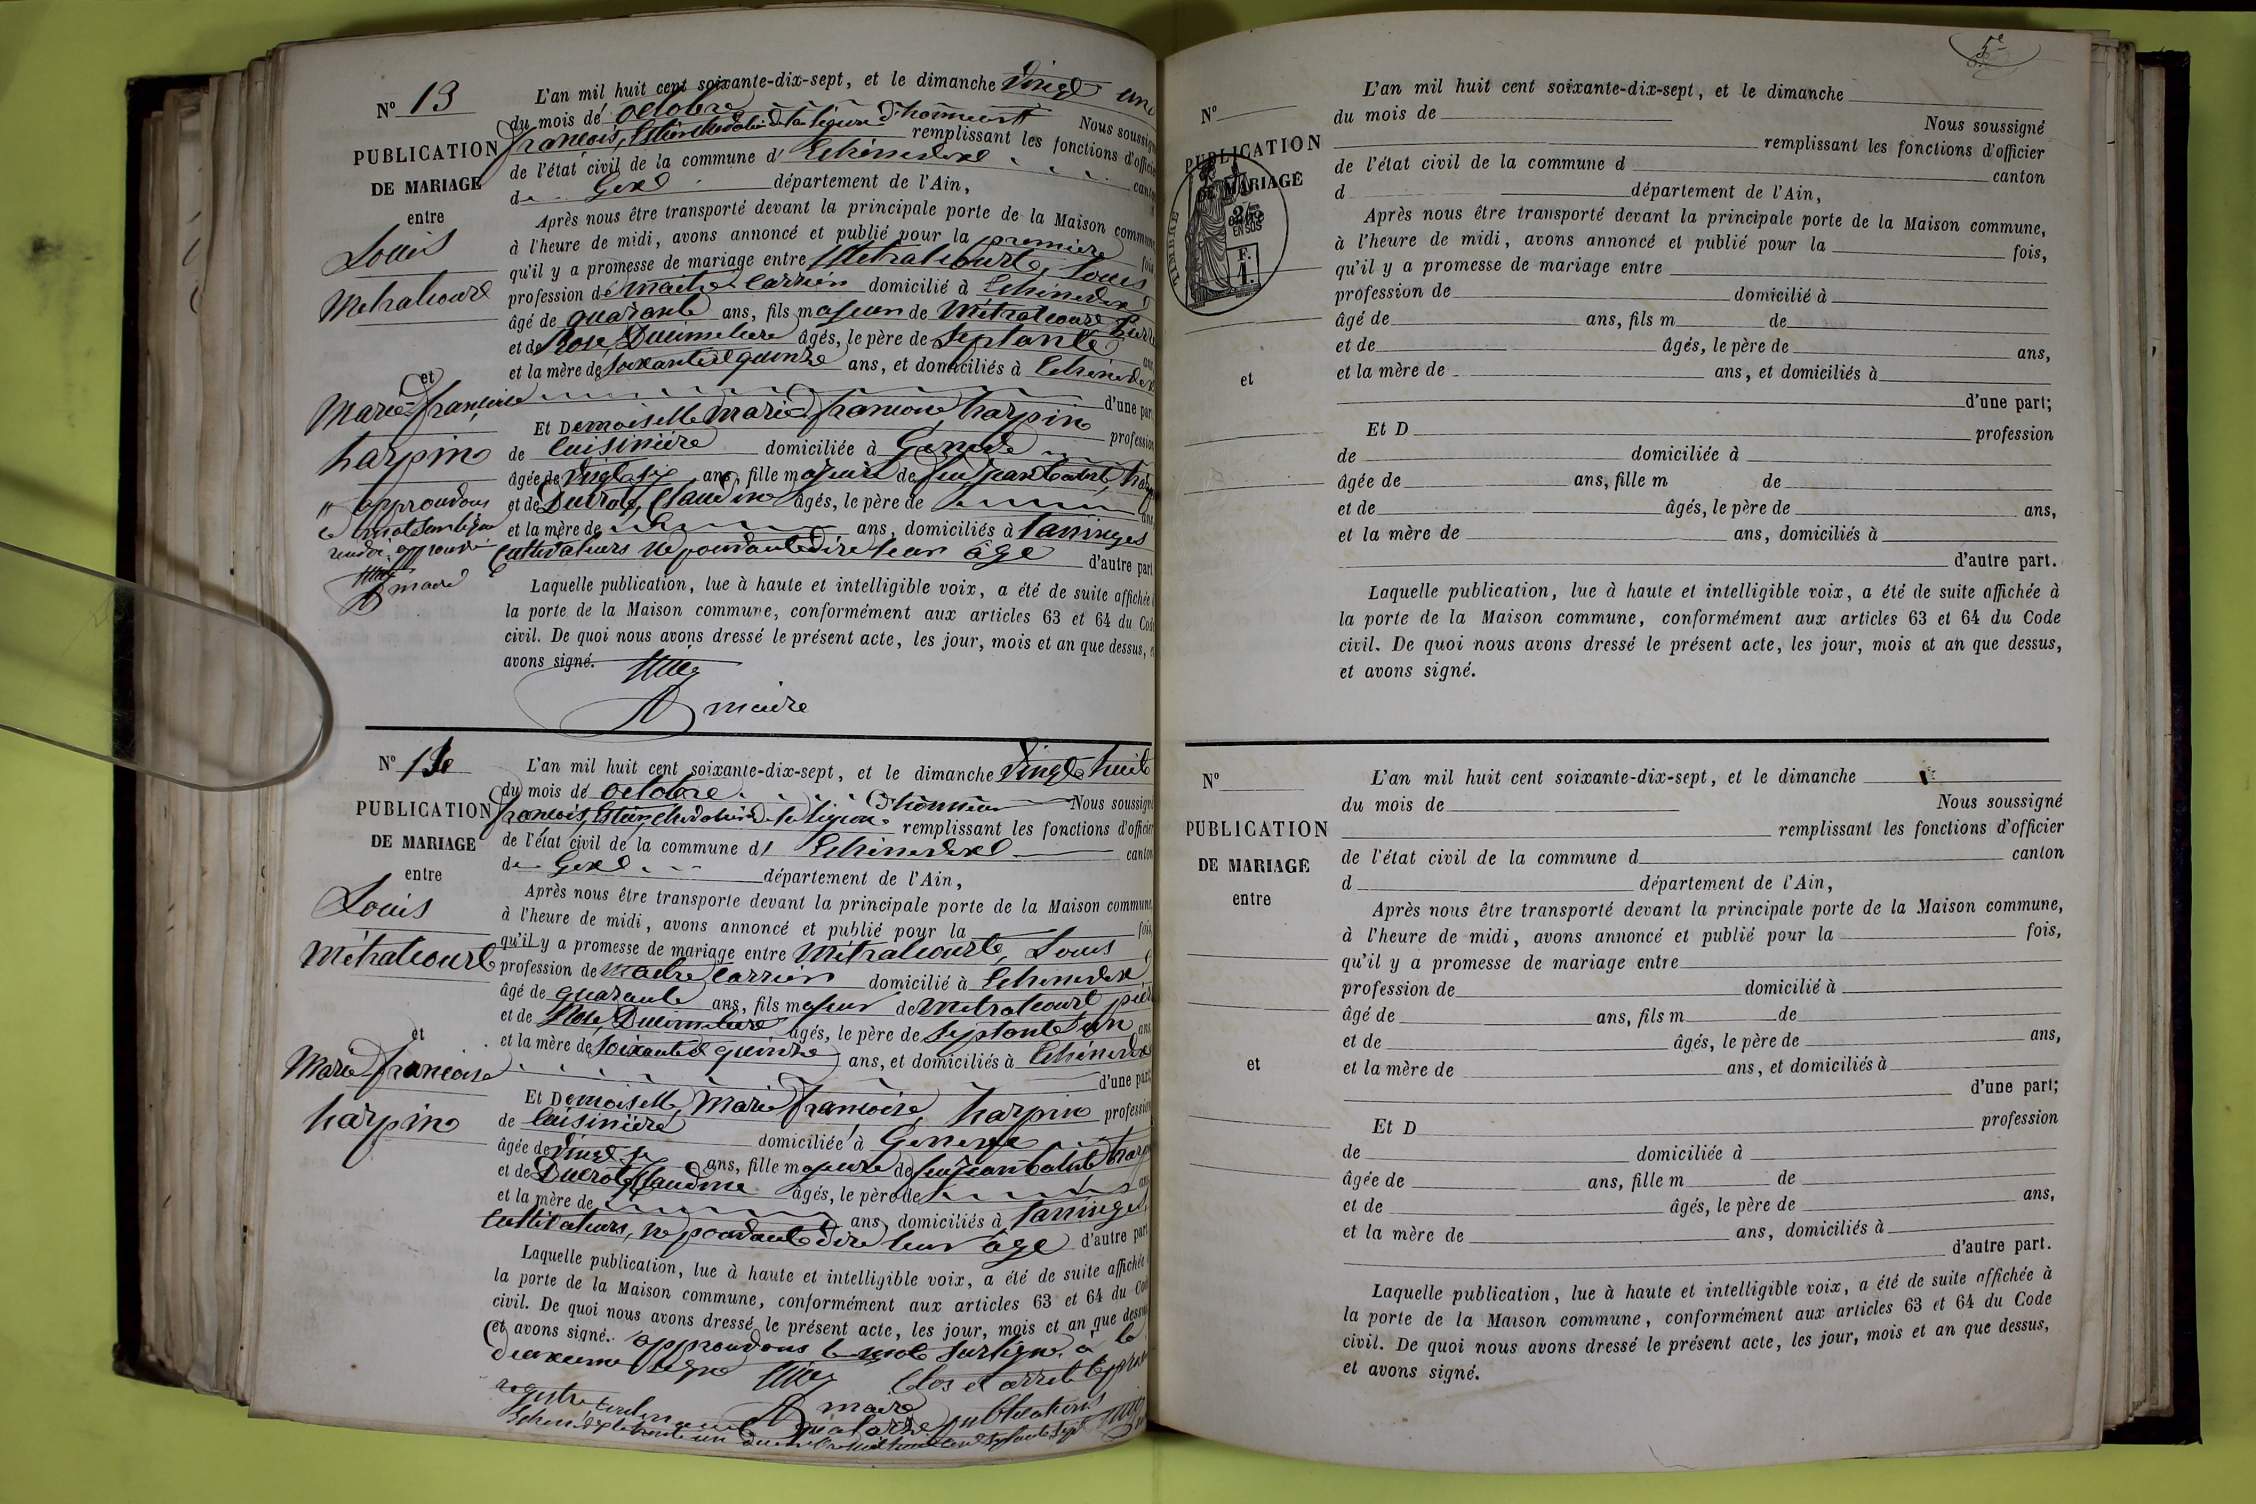 N° 13
PUBLICATION
DE MARIAGE
entre
Louis
Métralcourt
et
Marie françoise
harpin
approuvons
maire
L'an mil huit cent soixante-dix-sept, et le dimanche vingt un
du mois de octobre Nous soussigné
françois, chevalier de la légion d'honneur remplissant les fonctions d'officier
de l'état civil de la commune d'Echenevex canton
de Gex département de l'Ain,
Après nous être transporté devant la principale porte de la Maison commune
à l'heure de midi, avons annoncé et publié pour la première fois
qu'il y a promesse de mariage entre Métralcourt, Louis
profession de maitre carrier domicilié à Echenevex
âgé de quarante ans, fils majeur de Métralcourt Pierre
et de Rose, Ducimetiere âgés, le père de septante ans
et la mère de soixante et quinze ans, et domiciliés à Echenevex
d'une part
Et Demoiselle marie françoise harpin profession
de cuisinière domiciliée à Genève
âgée de vingt six ans, fille majeure de feu jean batiste, harpin
et de Ducrot, Claudine âgés, le père de ans
et la mère de ans, domiciliés à Taninges
Cultivateurs ne pouvant dire leur âge d'autre part
Laquelle publication, lue à haute et intelligible voix, a été de suite affichée à
la porte de la Maison commune, conformément aux articles 63 et 64 du Code
civil. De quoi nous avons dressé le présent acte, les jour, mois et an que dessus, et
avons signé.
maire
N° 14
PUBLICATION
DE MARIAGE
entre
Louis
Métralcourt
et
Marie françoise
harpin
L'an mil huit cent soixante-dix-sept, et le dimanche vingt huit
du mois de octobre d'honneur Nous soussigné
françois, chevalier de la légion remplissant les fonctions d'officier
de l'état civil de la commune d'Echenevex canton
de Gex département de l'Ain,
Après nous être transporté devant la principale porte de la Maison commune,
à l'heure de midi, avons annoncé et publié pour la fois
qu'il y a promesse de mariage entre Métralcourt, Louis
profession de maitre carrier domicilié à Echenevex
âgé de quarante ans, fils majeur de Métralcourt pierre
et de Rose, Ducimetiere âgés, le père de septante un ans
et la mère de soixante et quinze ans, et domiciliés à Echenevex
d'une part;
Et Demoiselle, Marie françoise, harpin profession
de cuisinière domiciliée à Genève
âgée de vingt six ans, fille majeure de feu jean batiste harpin
et de Ducrot Claudine âgés, le père de ans
et la mère de ans, domiciliés à Taninges
Cultivateurs, ne pouvant dire leur âge d'autre part
Laquelle publication, lue à haute et intelligible voix, a été de suite affichée à
la porte de la Maison commune, conformément aux articles 63 et 64 du Code
civil. De quoi nous avons dressé le présent acte, les jour, mois et an que dessus,
et avons signé. approuvons le mot surligné à la
deuxieme ligne Clos et arreté le présent
registre maire
quatorze publications
5e
N°
PUBLICATION
DE MARIAGE
TIMBRE
2/10es EN SUS
F. 1.
et
L'an mil huit cent soixante-dix-sept, et le dimanche
du mois de Nous soussigné
remplissant les fonctions d'officier
de l'état civil de la commune d canton
d département de l'Ain,
Après nous être transporté devant la principale porte de la Maison commune,
à l'heure de midi, avons annoncé et publié pour la fois,
qu'il y a promesse de mariage entre
profession de domicilié à
âgé de ans, fils m de
et de âgés, le père de ans,
et la mère de ans, et domiciliés à
d'une part;
Et D profession
de domiciliée à
âgée de ans, fille m de
et de âgés, le père de ans,
et la mère de ans, domiciliés à
d'autre part.
Laquelle publication, lue à haute et intelligible voix, a été de suite affichée à
la porte de la Maison commune, conformément aux articles 63 et 64 du Code
civil. De quoi nous avons dressé le présent acte, les jour, mois et an que dessus,
et avons signé.
N°
PUBLICATION
DE MARIAGE
entre
et
L'an mil huit cent soixante-dix-sept, et le dimanche
du mois de Nous soussigné
remplissant les fonctions d'officier
de l'état civil de la commune d canton
d département de l'Ain,
Après nous être transporté devant la principale porte de la Maison commune,
à l'heure de midi, avons annoncé et publié pour la fois,
qu'il y a promesse de mariage entre
profession de domicilié à
âgé de ans, fils m de
et de âgés, le père de ans,
et la mère de ans, et domiciliés à
d'une part;
Et D profession
de domiciliée à
âgée de ans, fille m de
et de âgés, le père de ans,
et la mère de ans, domiciliés à
d'autre part.
Laquelle publication, lue à haute et intelligible voix, a été de suite affichée à
la porte de la Maison commune, conformément aux articles 63 et 64 du Code
civil. De quoi nous avons dressé le présent acte, les jour, mois et an que dessus,
et avons signé.